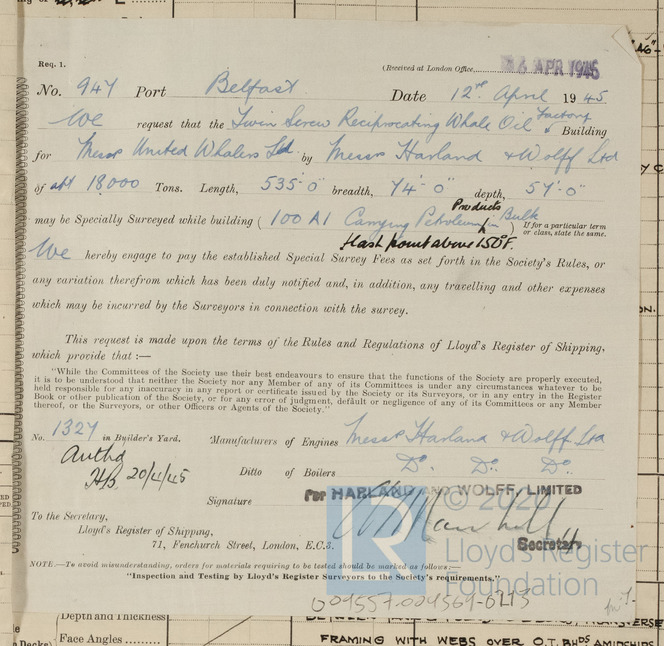 Req. 1.
(Received at London Office 16 APR 1945
No. 947 Port Belfast Date 12th April 1945
We request that the Twin Screw Reciprocating Whale Oil Factory Building
for Messrs United Whalers Ltd by Messrs Harland & Wolff Ltd
of abt 18,000 Tons. Length, 535'-0" breadth, 74'-0" depth, 57'-0"
may be Specially Surveyed while building ( 100 A1 Carrying Petroleum Products in Bulk ) If for a particular term or class, state the same.
flash point above 150°F.
We hereby engage to pay the established Special Survey Fees as set forth in the Society's Rules, or
any variation therefrom which has been duly notified and, in addition, any travelling and other expenses
which may be incurred by the Surveyors in connection with the survey.
This request is made upon the terms of the Rules and Regulations of Lloyd's Register of Shipping,
which provide that :—
"While the Committees of the Society use their best endeavours to ensure that the functions of the Society are properly executed,
it is to be understood that neither the Society nor any Member of any of its Committees is under any circumstances whatever to be
held responsible for any inaccuracy in any report or certificate issued by the Society or its Surveyors, or in any entry in the Register
Book or other publication of the Society, or for any error of judgment, default or negligence of any of its Committees or any Member
thereof, or the Surveyors, or other Officers or Agents of the Society."
No. 1327 in Builder's Yard, Manufacturers of Engines Messrs Harland & Wolff Ltd
Authd
HB 20/4/45
Ditto of Boilers Do. Do. Do.
Signature For HARLAND AND WOLFF, LIMITED
Secretary
To the Secretary,
Lloyd's Register of Shipping,
71, Fenchurch Street, London, E.C.3.
NOTE.—To avoid misunderstanding, orders for materials requiring to be tested should be marked as follows:—
"Inspection and Testing by Lloyd's Register Surveyors to the Society's requirements."
© 2020
LR
Lloyd's Register
Foundation
009557-009569-0213
Depth and Thickness
Face Angles
FRAMING WITH WEBS OVER O.T. BHDS. AMIDSHIPS